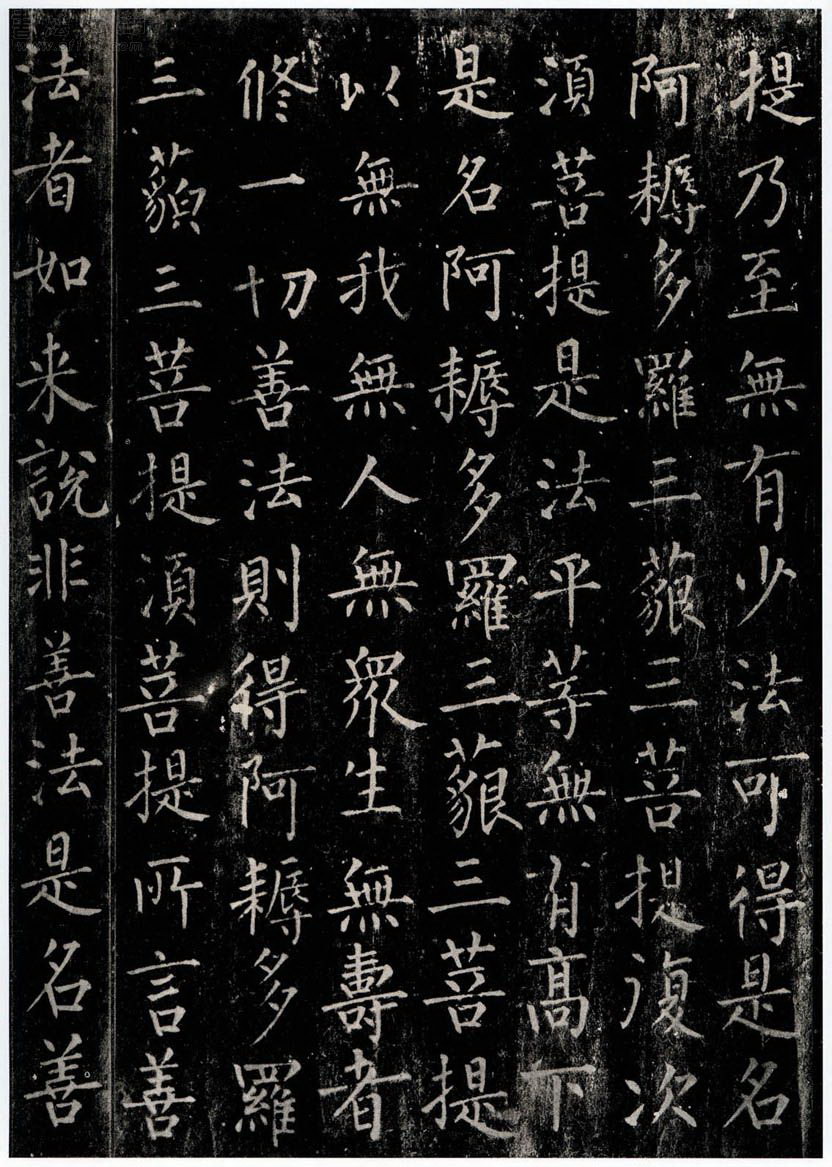 提乃至無有少法可得是名
阿耨多羅三藐三菩提復次
湏菩提是法平等無有高下
是名阿耨多羅三藐三菩提
以無我無人無眾生無壽者
修一切善法則得阿耨多羅
三藐三菩提湏菩提所言善
法者如来說非善法是名善